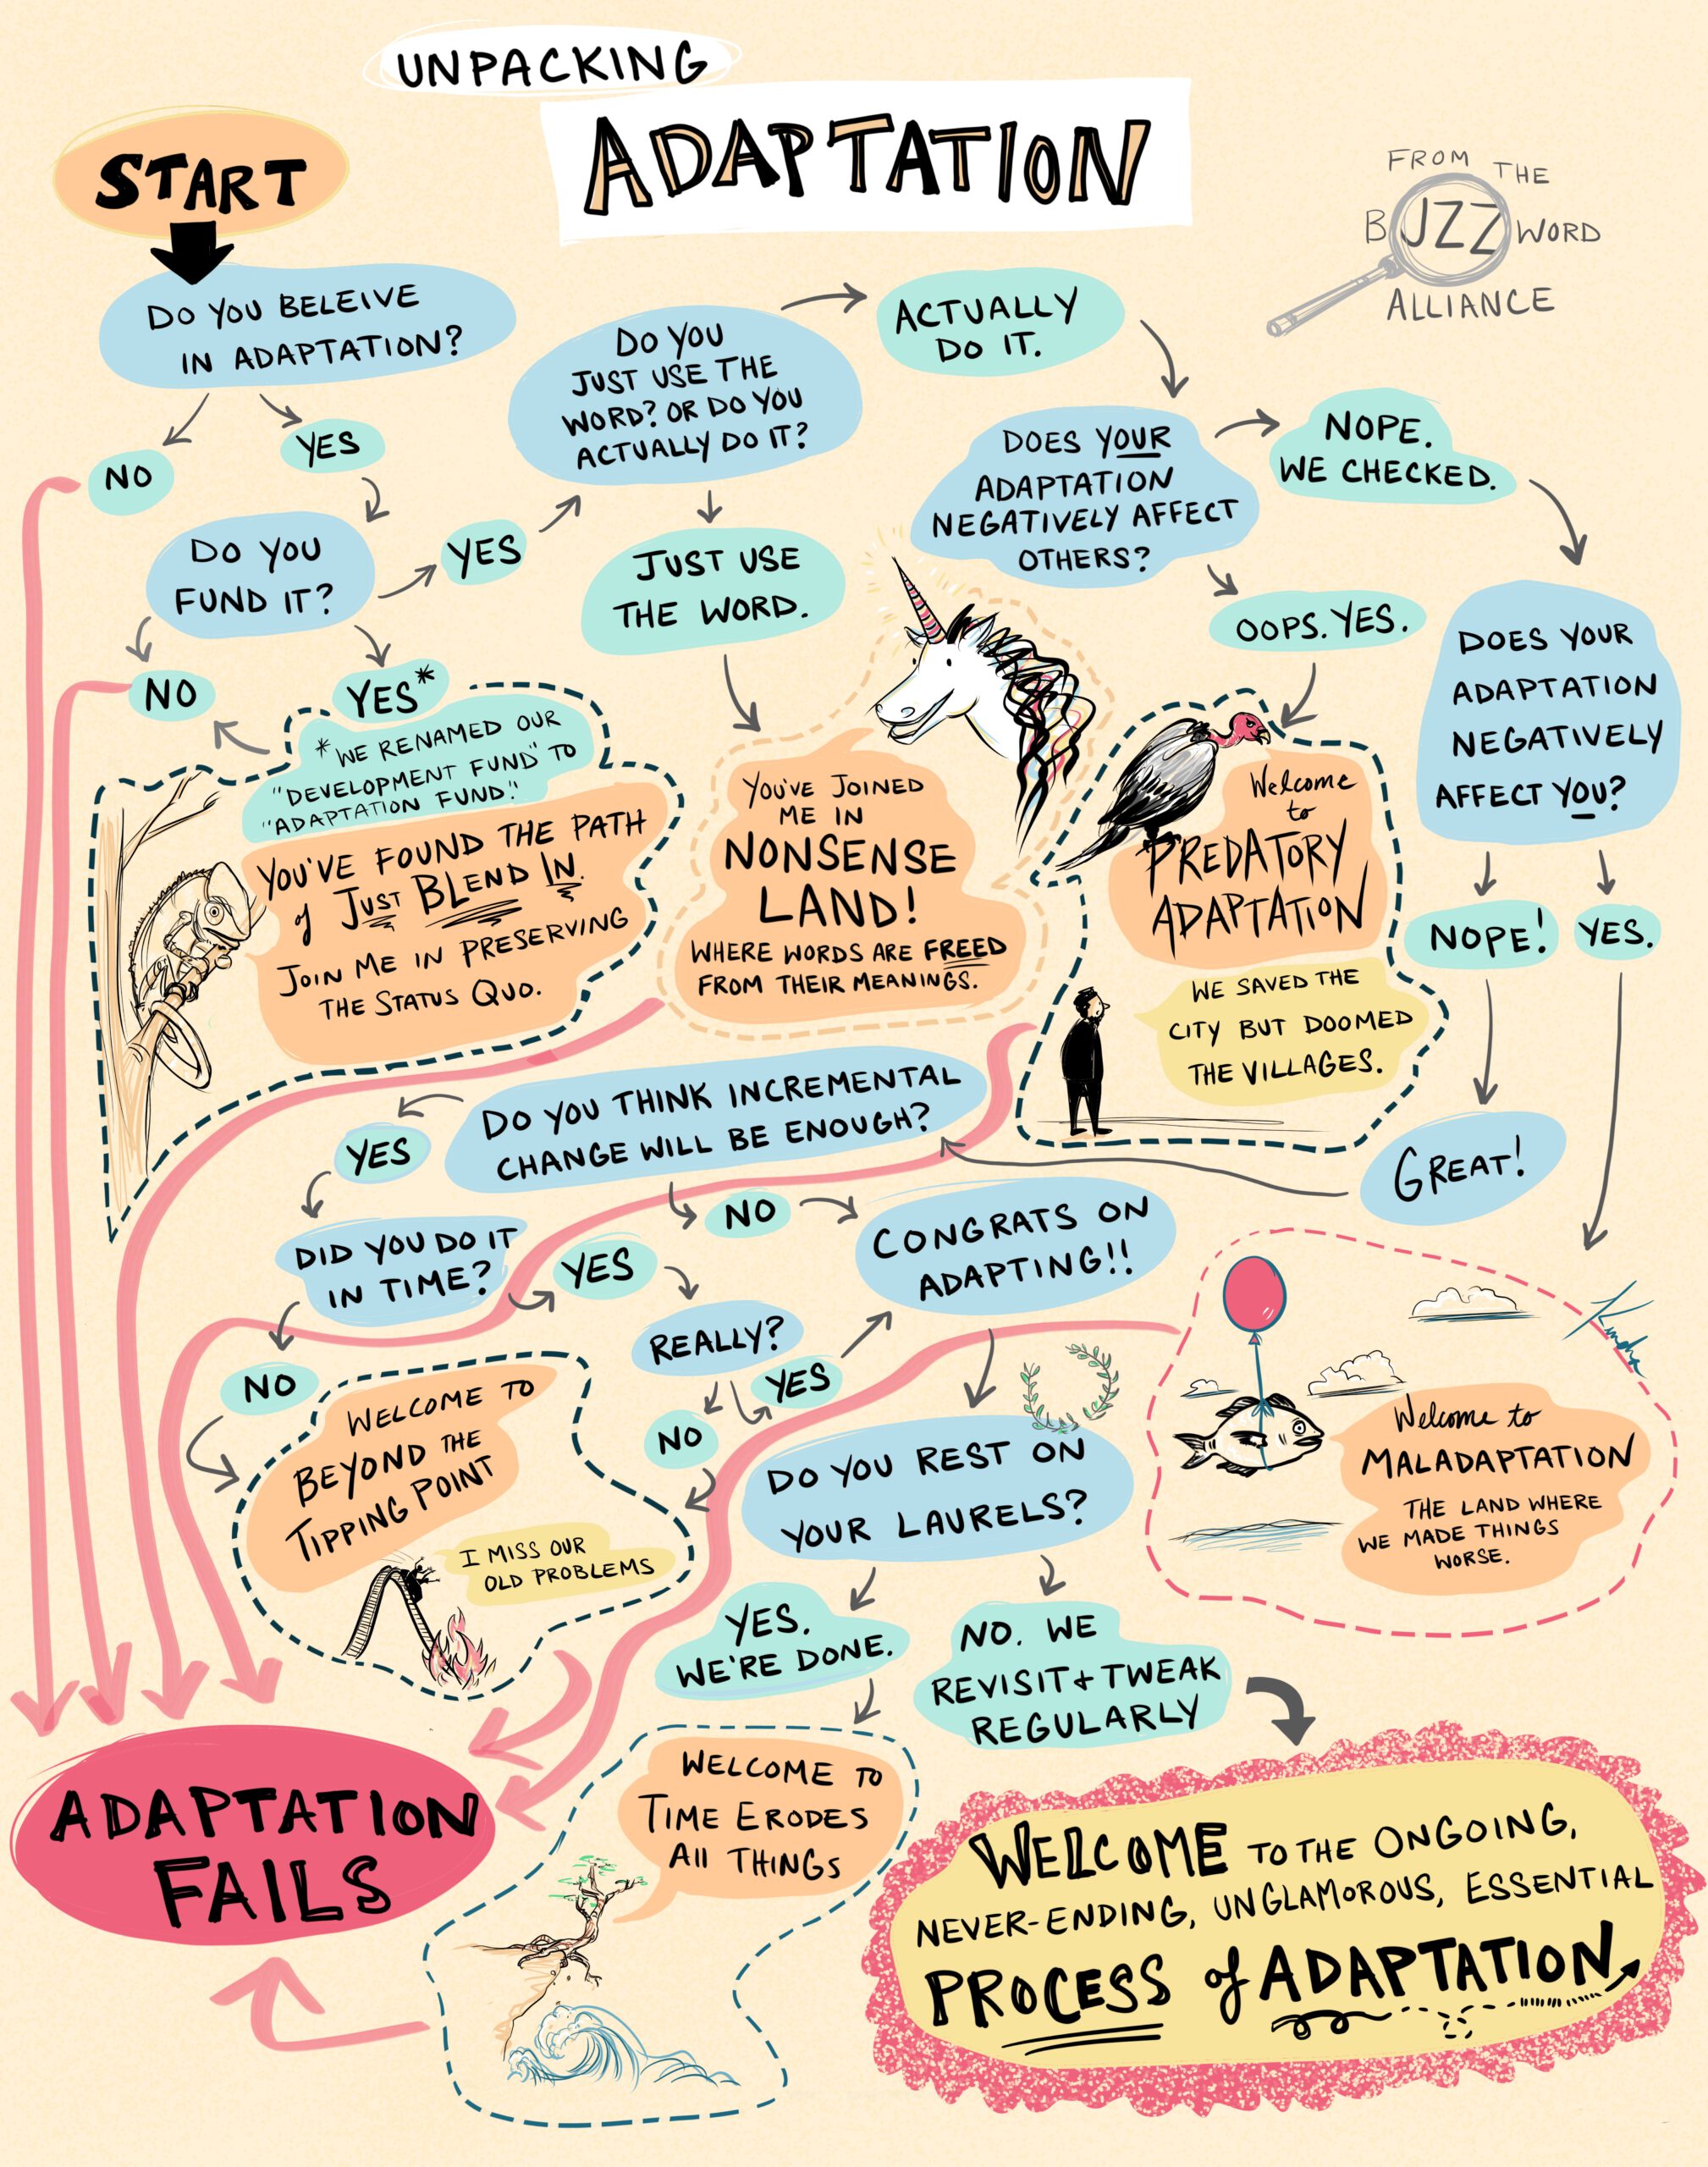 UNPACKING
ADAPTATION
FROM THE
BUZZ WORD
ALLIANCE
START
DO YOU BELEIVE
IN ADAPTATION?
NO
YES
DO YOU
FUND IT?
YES
NO
YES*
*WE RENAMED OUR
"DEVELOPMENT FUND" TO
"ADAPTATION FUND."
YOU'VE FOUND THE PATH
of JUST BLEND IN.
JOIN ME IN PRESERVING
THE STATUS QUO.
DO YOU
JUST USE THE
WORD? OR DO YOU
ACTUALLY DO IT?
JUST USE
THE WORD.
YOU'VE JOINED
ME IN
NONSENSE
LAND!
WHERE WORDS ARE FREED
FROM THEIR MEANINGS.
ACTUALLY
DO IT.
DOES YOUR
ADAPTATION
NEGATIVELY AFFECT
OTHERS?
OOPS. YES.
Welcome
to
PREDATORY
ADAPTATION
WE SAVED THE
CITY BUT DOOMED
THE VILLAGES.
NOPE.
WE CHECKED.
DOES YOUR
ADAPTATION
NEGATIVELY
AFFECT YOU?
NOPE!
YES.
GREAT!
DO YOU THINK INCREMENTAL
CHANGE WILL BE ENOUGH?
YES
NO
DID YOU DO IT
IN TIME?
YES
NO
REALLY?
YES
NO
WELCOME TO
BEYOND THE
TIPPING POINT
I MISS OUR
OLD PROBLEMS
CONGRATS ON
ADAPTING!!
DO YOU REST ON
YOUR LAURELS?
YES.
WE'RE DONE.
NO. WE
REVISIT + TWEAK
REGULARLY
Welcome to
MALADAPTATION
THE LAND WHERE
WE MADE THINGS
WORSE.
WELCOME TO
TIME ERODES
All THINGS
ADAPTATION
FAILS
WELCOME TO THE ONGOING,
NEVER-ENDING, UNGLAMOROUS, ESSENTIAL
PROCESS of ADAPTATION